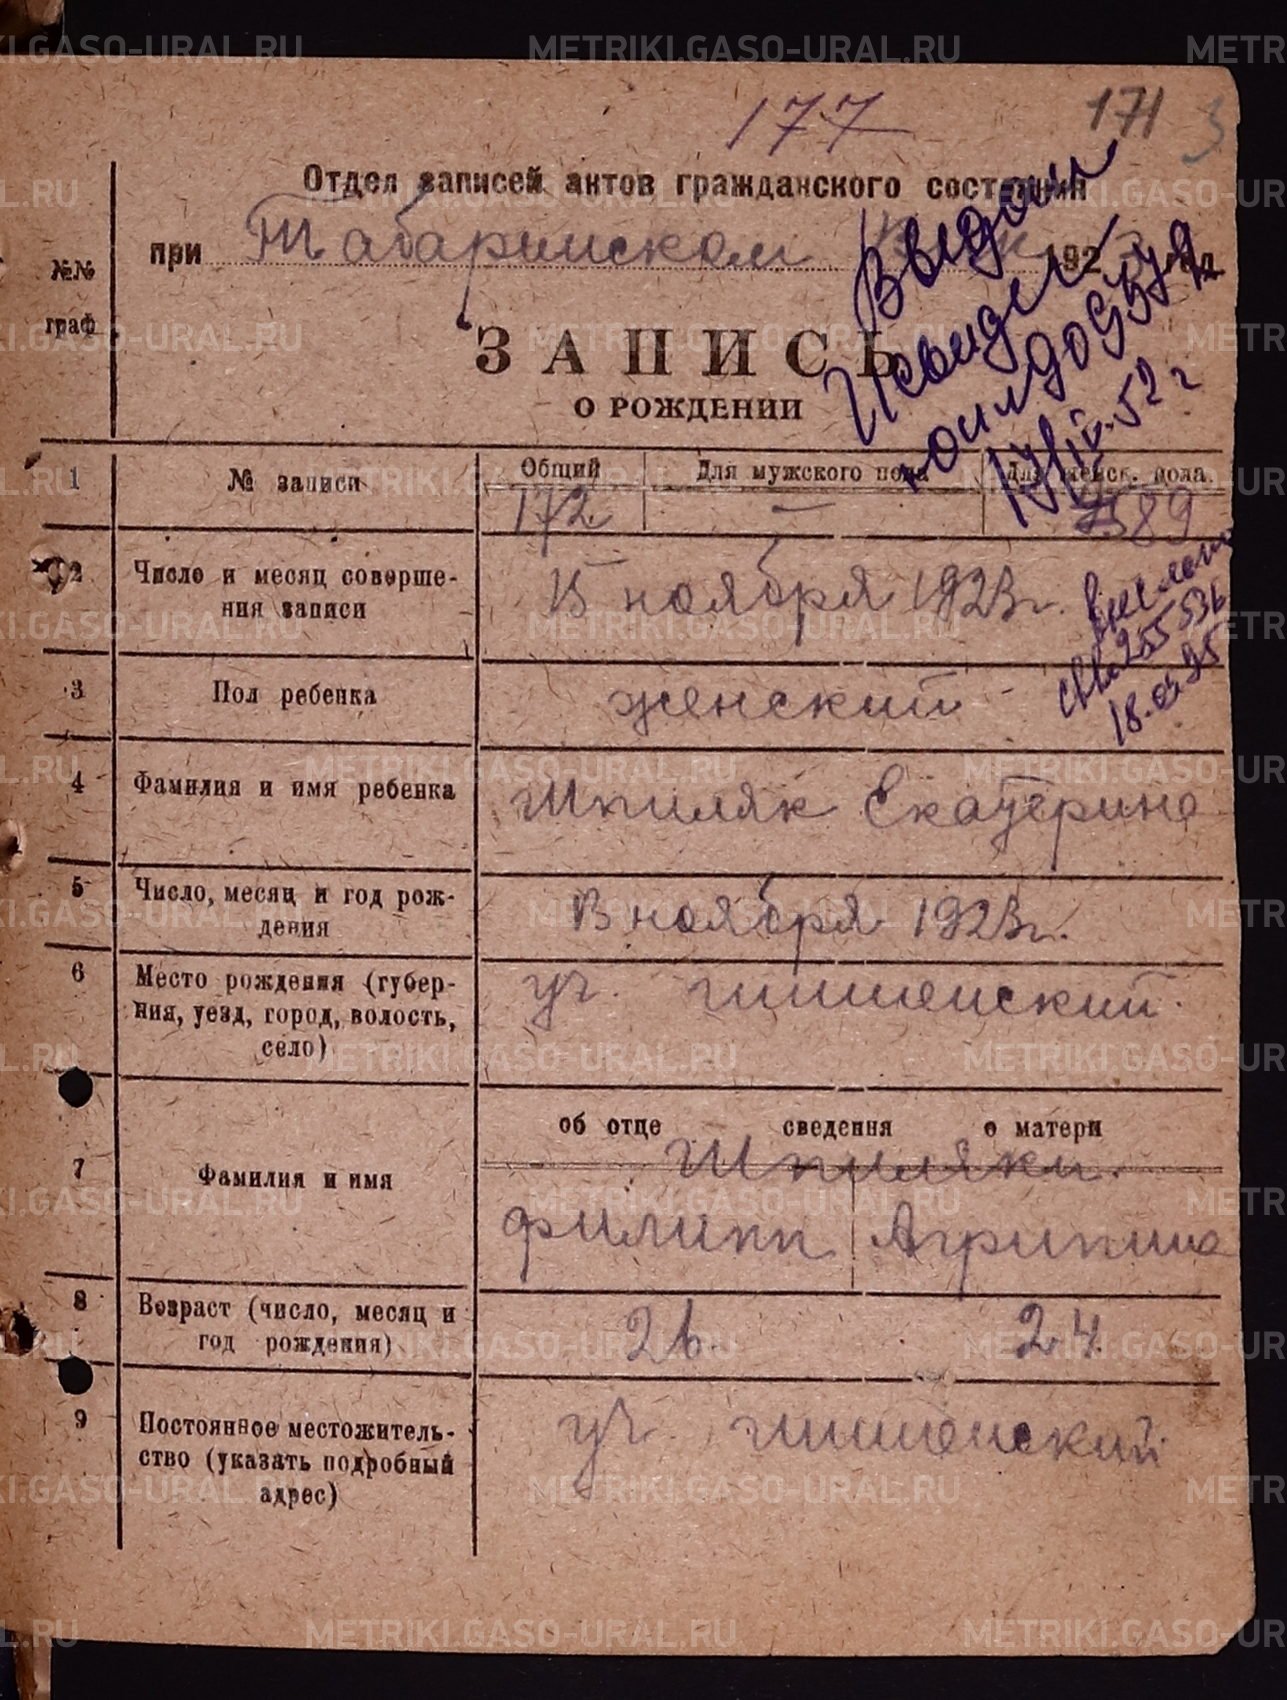 177
171 3
Отдел записей актов гражданского состояния
при Таборинском 192 год
№№
граф
ЗАПИСЬ
О РОЖДЕНИИ
Выдан
17/IV-52 г
1 № записи Общий Для мужского пола Для женск. пола.
172 — 89
2 Число и месяц соверше-
ния записи
15 ноября 1923 г.
255536
18.03.95
3 Пол ребенка женский
4 Фамилия и имя ребенка Шпиляк Екатерина
5 Число, месяц и год рож-
дения
13 ноября 1923 г.
6 Место рождения (губер-
ния, уезд, город, волость,
село)
уч.
об отце сведения о матери
7 Фамилия и имя
Шпиляки.
Филипп Агрипина
8 Возраст (число, месяц и
год рождения)
26. 24.
9 Постоянное местожитель-
ство (указать подробный
адрес)
уч.
METRIKI.GASO-URAL.RU